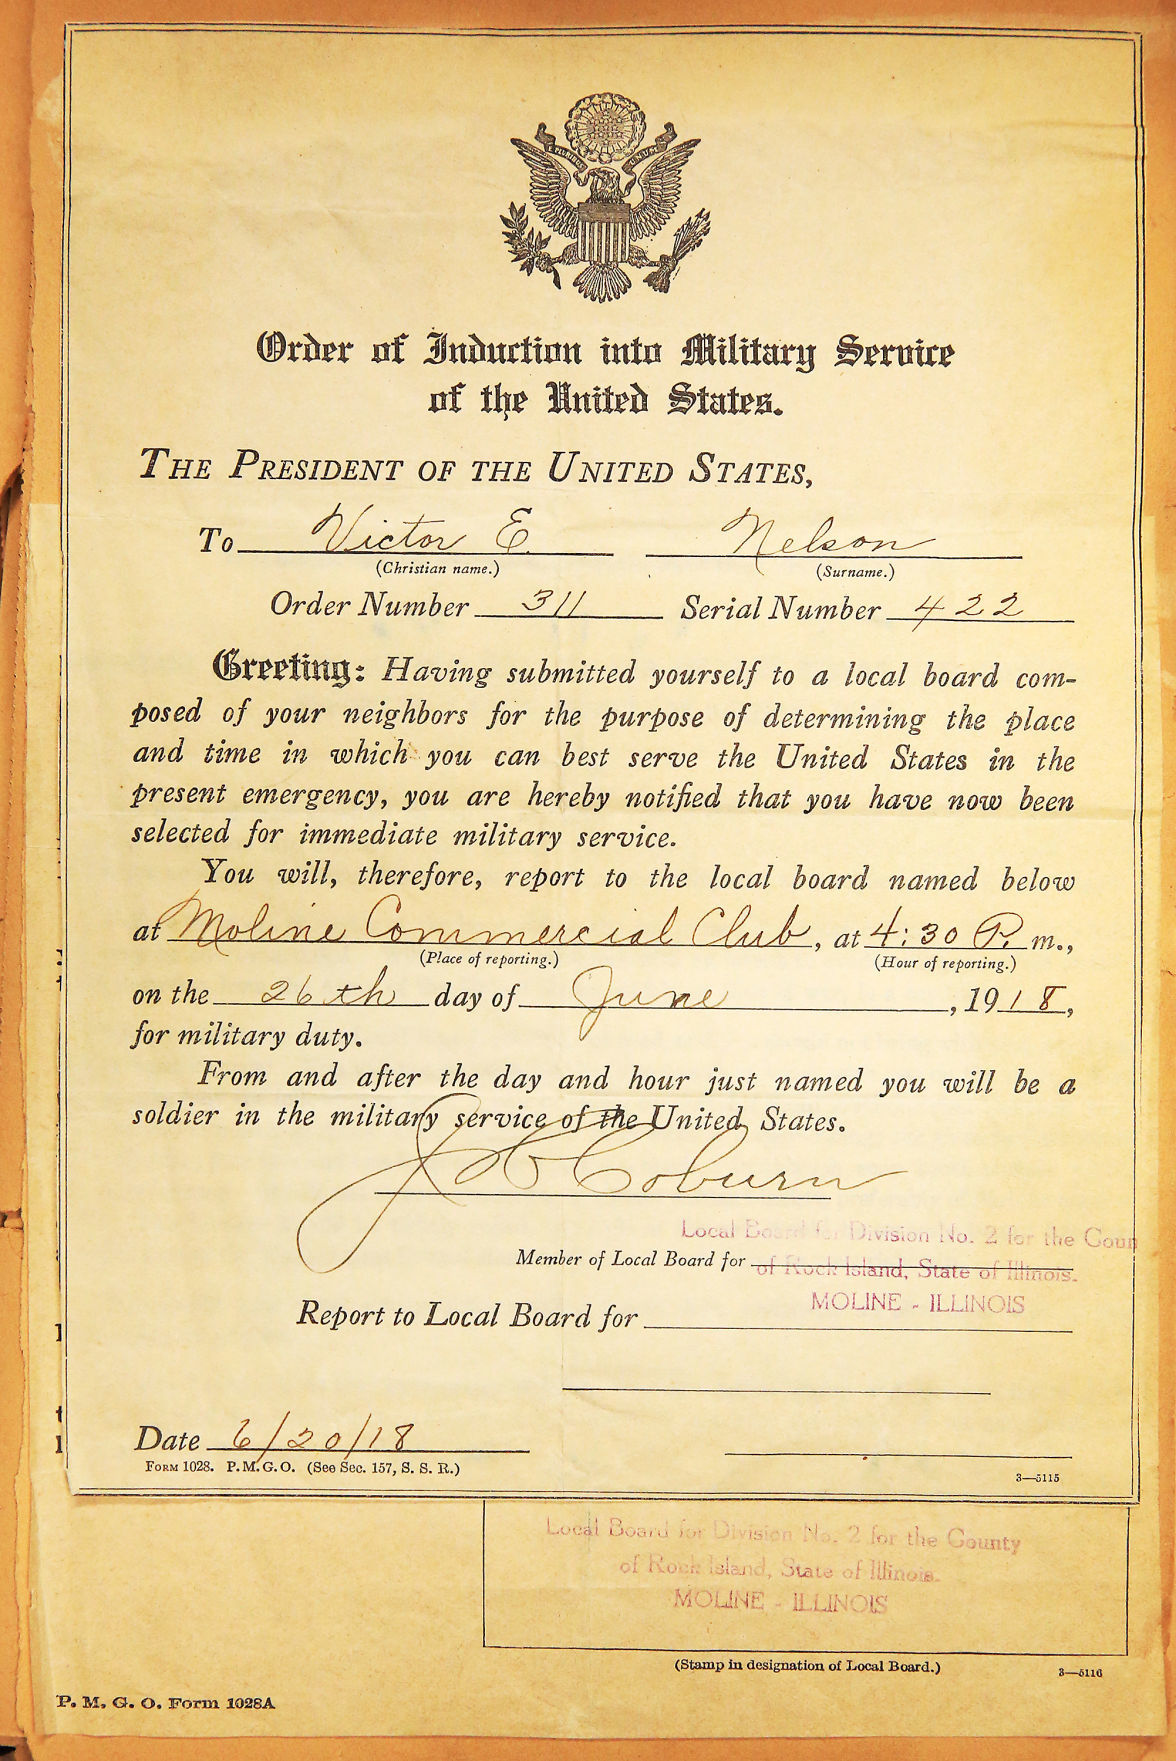 E PLURIBUS UNUM
Order of Induction into Military Service
of the United States.
THE PRESIDENT OF THE UNITED STATES,
To Victor E. Nelson
(Christian name.) (Surname.)
Order Number 311 Serial Number 422
Greeting: Having submitted yourself to a local board com-
posed of your neighbors for the purpose of determining the place
and time in which you can best serve the United States in the
present emergency, you are hereby notified that you have now been
selected for immediate military service.
You will, therefore, report to the local board named below
at Moline Commercial Club, at 4:30 P. m.,
(Place of reporting.) (Hour of reporting.)
on the 26th day of June, 1918,
for military duty.
From and after the day and hour just named you will be a
soldier in the military service of the United States.
Coburn
Local Board for Division No. 2 for the Coun
Member of Local Board for of Rock Island, State of Illinois.
MOLINE - ILLINOIS
Report to Local Board for
Date 6/20/18
FORM 1028. P. M. G. O. (See Sec. 157, S. S. R.)
3—5115
Local Board for Division No. 2 for the County
of Rock Island, State of Illinois.
MOLINE - ILLINOIS
(Stamp in designation of Local Board.)
3—5116
P. M. G. O. Form 1028A